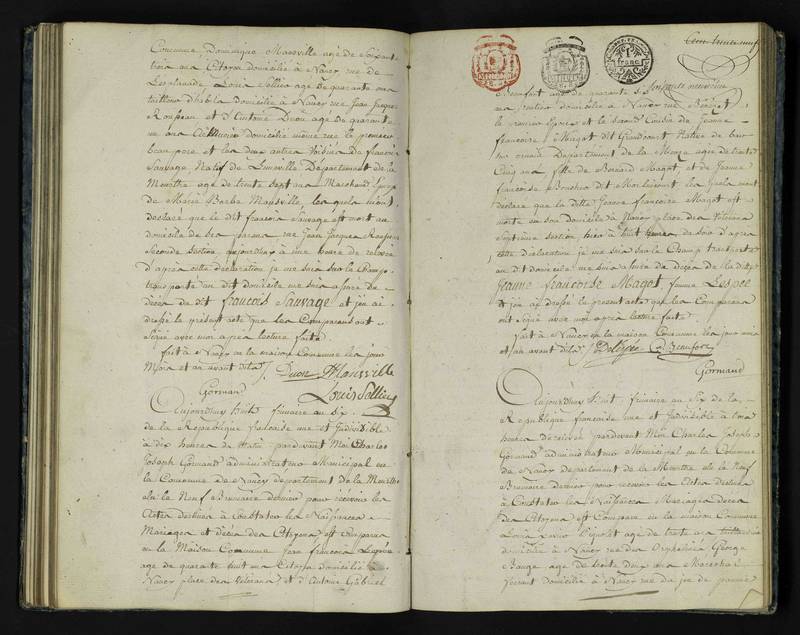 Commune Dominique Mansville agé de Soixante
trois ans Citoyen domicilié à Nancy rue de
Lesplanade Louis Sellier agé de quarante ans
tailleur d'habits domicilié à Nancy rue Jean Jacques
Rousseau et d'Antoine Duon agé de quarante
un ans domicilié même rue le premier
beau pere et les deux autres Voisins de francois
Sauvage, Natif de Luneville Département de la
Meurthe age de trente Sept ans Marchand Epoux
de Marie Barbe Mansville, lesquels m'ont
declaré que le dit françois Sauvage est mort au
domicile de ses parans rue Jean Jacques Rousseau
Seconde Section aujourdhuy à une heure de relevée
d'apres cette déclaration je me suis sur le Champ
transporté au dit domicile me suis assuré du
deces du dit francois Sauvage et j'en ai
dressé le présent acte que les Comparans ont
Signé avec moi apres lecture faite.
fait à Nancy en la maison Commune les jour
Mois et an avant dits J. Duon Mansville
Gormand Louis Sellier
Aujourdhuy huit frimaire an Six
de la République francaise une et Indivisible
à dix heures du Matin pardevant Moi Charles
Joseph Gormand administrateur Municipal en
la Commune de Nancy departement de la Meurthe
élu le Neuf Brumaire dernier pour recevoir les
Actes destinés à constater les Naissances
Mariages et décès des Citoyens est comparu
en la Maison Commune jean francois Lespine
age de quarante huit ans Citoyen domicilié à
Nancy place des Veterans et d'Antoine Gabriel
Cent trente neuf
1 franc
Beaufort agé de quarante Soixante neuvieme
ans rentier domicilié à Nancy rue
le premier Epoux et le Second Cousin de Jeanne
francoise Magot dit Grandcourt Native de
Département de la Meuse agée de trente
Cinq ans, fille de Bernard Magot, et de Jeanne
francoise dit lesquels m'ont
déclaré que la dite Jeanne francoise Magot est
morte en son domicile à Nancy place des Veterans
Septieme Section hier à huit heures du soir d'apres
cette déclaration je me suis sur le Champ transporté
au dit domicile me suis assuré du deces de la dite
Jeanne francoise Magot femme Lespine
et j'en ai dressé le present acte que les Comparans
ont Signé avec moi apres lecture faite
fait à Nancy en la maison Commune les jour mois
et an avant dits
Gormand
Aujourdhuy huit frimaire an Six de la
République francaise une et Indivisible à
heures de relevée pardevant Moi Charles Joseph
Gormand administrateur Municipal en la Commune
de Nancy departement de la Meurthe élu le Neuf
Brumaire dernier pour recevoir les Actes destinés
à Constater les Naissances Mariages deces
des Citoyens est Comparu en la maison Commune
Louis age de trente ans
domicilié à Nancy rue des Orphelines George
age de trente deux ans Marechal
ferrant domicilié à Nancy rue du jeu de paume